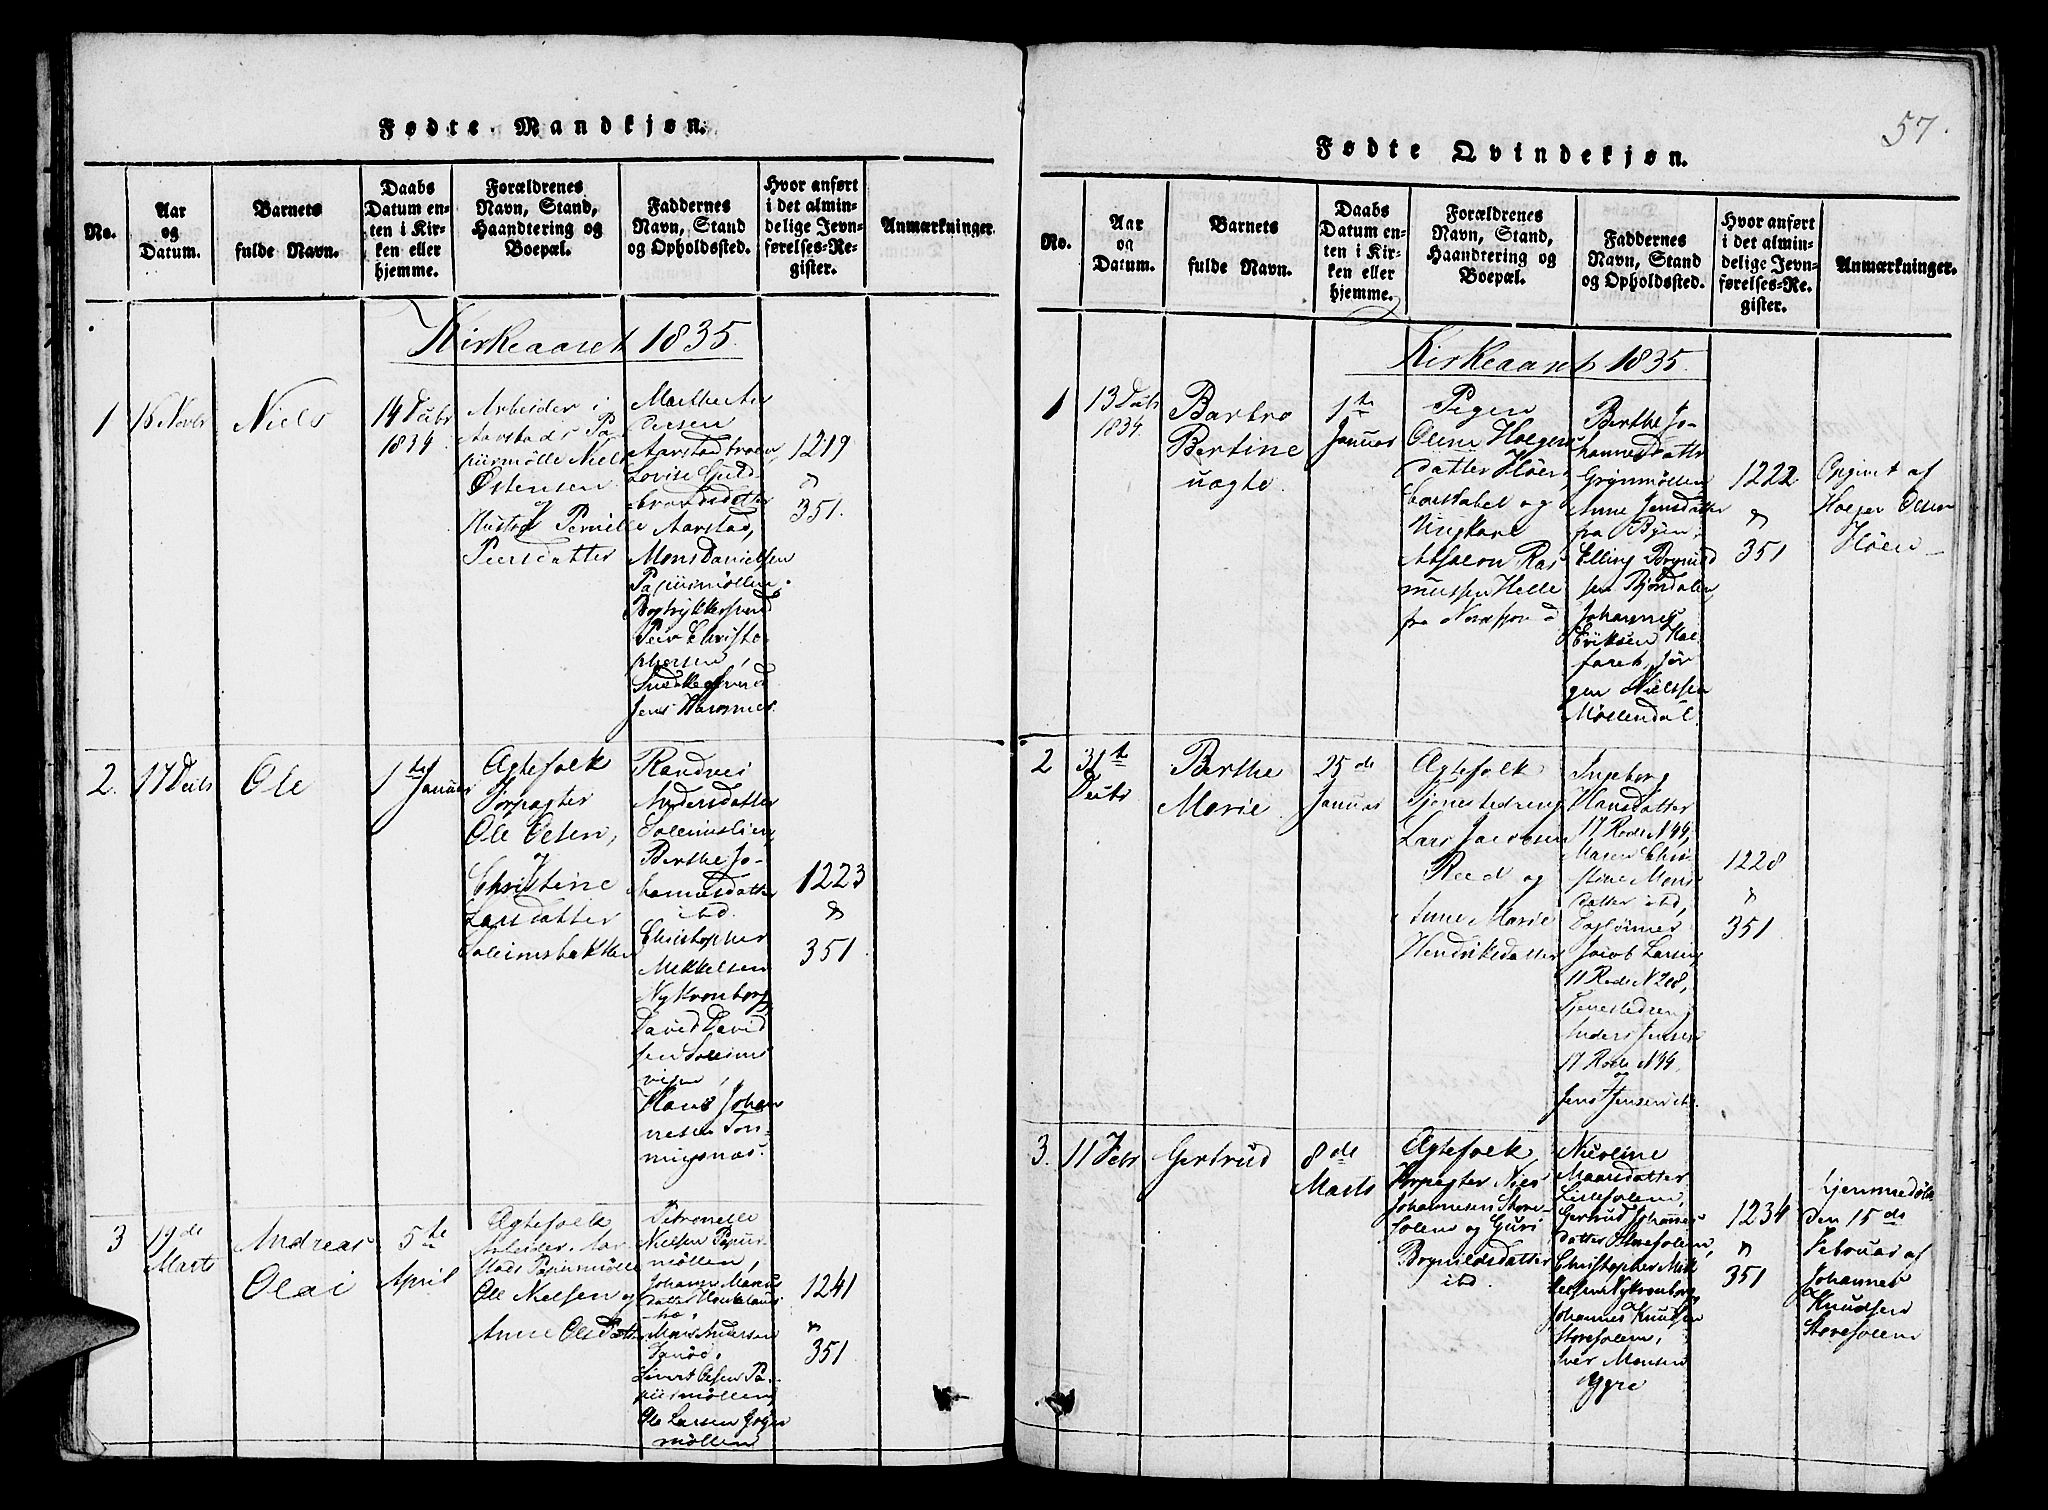 Fødte Mandkjøn.
No.
Aar
og
Datum.
Barnets
fulde Navn.
Daabs
Datum en-
ten i Kir-
ken eller
hjemme.
Forældrenes
Navn, Stand,
Haandtering og
Boepæl.
Faddernes
Navn, Stand
og Opholdssted.
Hvor anført
i det almin-
delige Jevn-
førelses-Re-
gister.
Anmærkninger.
Kirkeaaret 1835.
1
Niels
1834
Arbeider i
Aarstads Pa-
piirmølle Niels
Østensen
og
Hustrue Pernille
Peersdatter
Aarstad,
Mons Danielsen
Papiirmøllen,
Bogtrykkersvend
Peer Christo-
phersen,
Snedkersvend
Jens
1219
351.
2.
17 Decbr
Ole
1te Januar
Ægtefolk
Forpagter
Ole Olsen,
og
Christine
Larsdatter
Soleimsbakken
Randvei
Andersdatter
Soleimslien,
Berthe Jo-
hannesdatter
ibd.
Christopher
Mekkelsen
Nykronborg
David David
sen Soleims
vigen,
Hans Johan
nesen
1223
351
3
19de
Marts
Andreas
Olai
5te
April
Ægtefolk
Arbeider Aar
stads Papiirmølle
Ole Nielsen og
Anne Olsdatter
Petronelle
Nielsen Papiir-
møllen,
Mons Andersen
Olsen Pa-
piirmøllen,
Ole Larsen
møllen
1241
351
57.
Fødte Qvindekjøn.
No.
Aar
og
Datum.
Barnets
fulde Navn.
Daabs
Datum en-
ten i Kir-
ken eller
hjemme.
Forældrenes
Navn, Stand,
Haandtering og
Boepæl.
Faddernes
Navn, Stand
og Opholdssted.
Hvor anført
i det almin-
delige Jevn-
førelses-Re-
gister.
Anmærkninger.
Kirkeaaret 1835.
1
13 Decbr
1834.
Barbro
Bertine
uægte.
1te
Januar
Pigen
Oline Holgers
datter Høien
og
Ungkarl
Absalon Ras
mussen Helle
fra Nordfjord
Berthe Jo-
hannesdatter
Grynmøllen
Anne Jensdatter
fra Byen,
Elling Brynild
sen Bjøndalen,
Johannes
Eriksen Kal-
faret, Jør
gen Nielssen
Møllendal.
1222
351
Opgivet af
Holger Olsen
Høien
2
31te
Decbr
Berthe
Marie
25de
Januar
Ægtefolk
Tjenestedreng
Lars Jacobsen
Reed og
Anne Marie
Hendriksdatter
Ingeborg
Hansdatter
17 Rode N 44,
Maren Chri-
stine Mons
datter ibd,
Jacob Larsen
11 Rode N 208,
Tjenestedreng
Anders Jensen
17 Rode N 44
og
Jens Jensen ibd.
1228
351
3.
11 Febr
Gertrud
8de
Marts
Ægtefolk
Forpagter Niels
Johannesen Store-
Solem og Guri
Brynildsdatter
ibd.
Nicoline
Maarsdatter
Lillesolem,
Gertrud Johannes
datter Storesolem,
Christopher Mek
kelsen Nykronborg
Johannes Knudsen
Storesolem,
Iver Monsen
1234
351
hjemmedøbt
den 15de
Februar af
Johannes
Knudsen
Storesolem